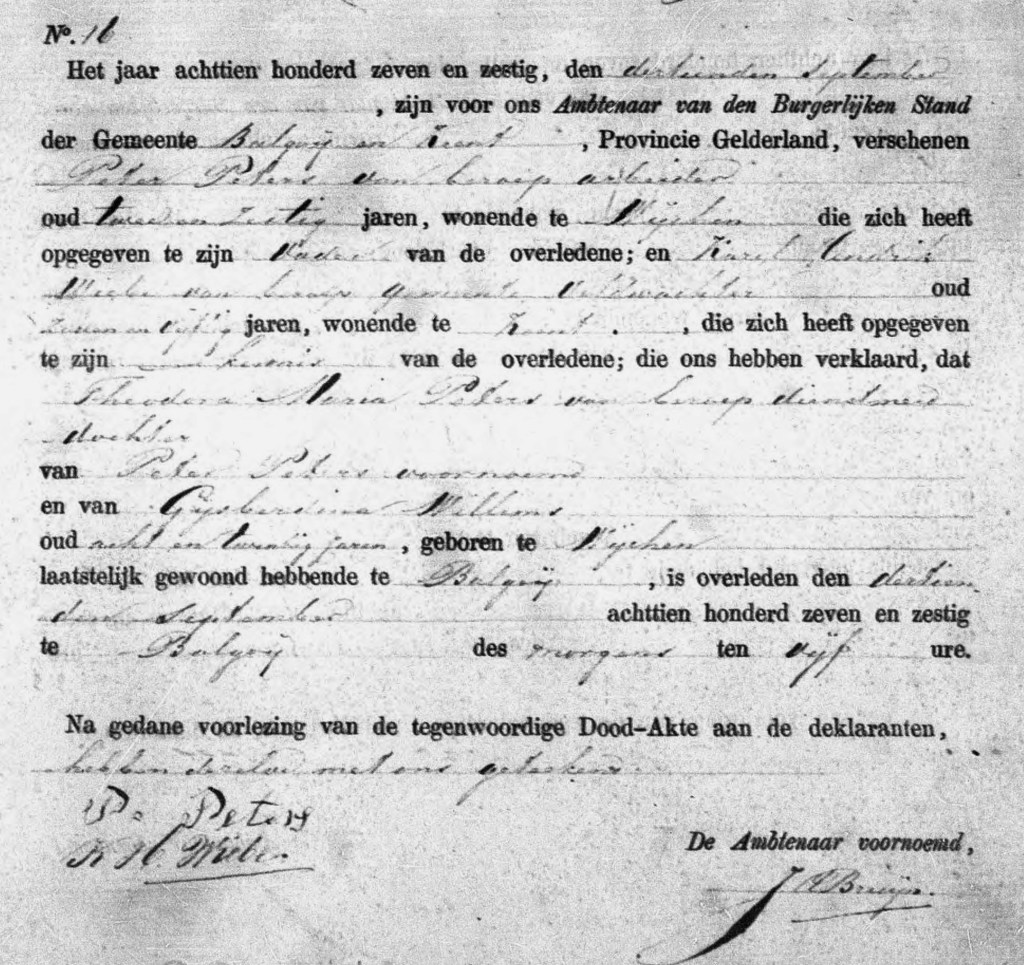 No. 16
Het jaar achttien honderd zeven en zestig, den dertienden September
, zijn voor ons Ambtenaar van den Burgerlijken Stand
der Gemeente Balgoij en Keent, Provincie Gelderland, verschenen
Peter Peters van beroep arbeider
oud twee en zestig jaren, wonende te Wijchen die zich heeft
opgegeven te zijn Vader van de overledene; en Karel Hendrik
van beroep gemeente veldwachter oud
zeven en vijftig jaren, wonende te Keent, die zich heeft opgegeven
te zijn kennis van de overledene; die ons hebben verklaard, dat
Theodora Maria Peters van beroep dienstmeid
dochter
van Peter Peters voornoemd
en van Gijsberdina Willems
oud acht en twintig jaren, geboren te Wijchen
laatstelijk gewoond hebbende te Balgoij, is overleden den dertien
den September achttien honderd zeven en zestig
te Balgoij des morgens ten vijf ure.
Na gedane voorlezing van de tegenwoordige Dood-Akte aan de deklaranten,
hebben dezelve met ons geteekend
P. Peters
K H
De Ambtenaar voornoemd,